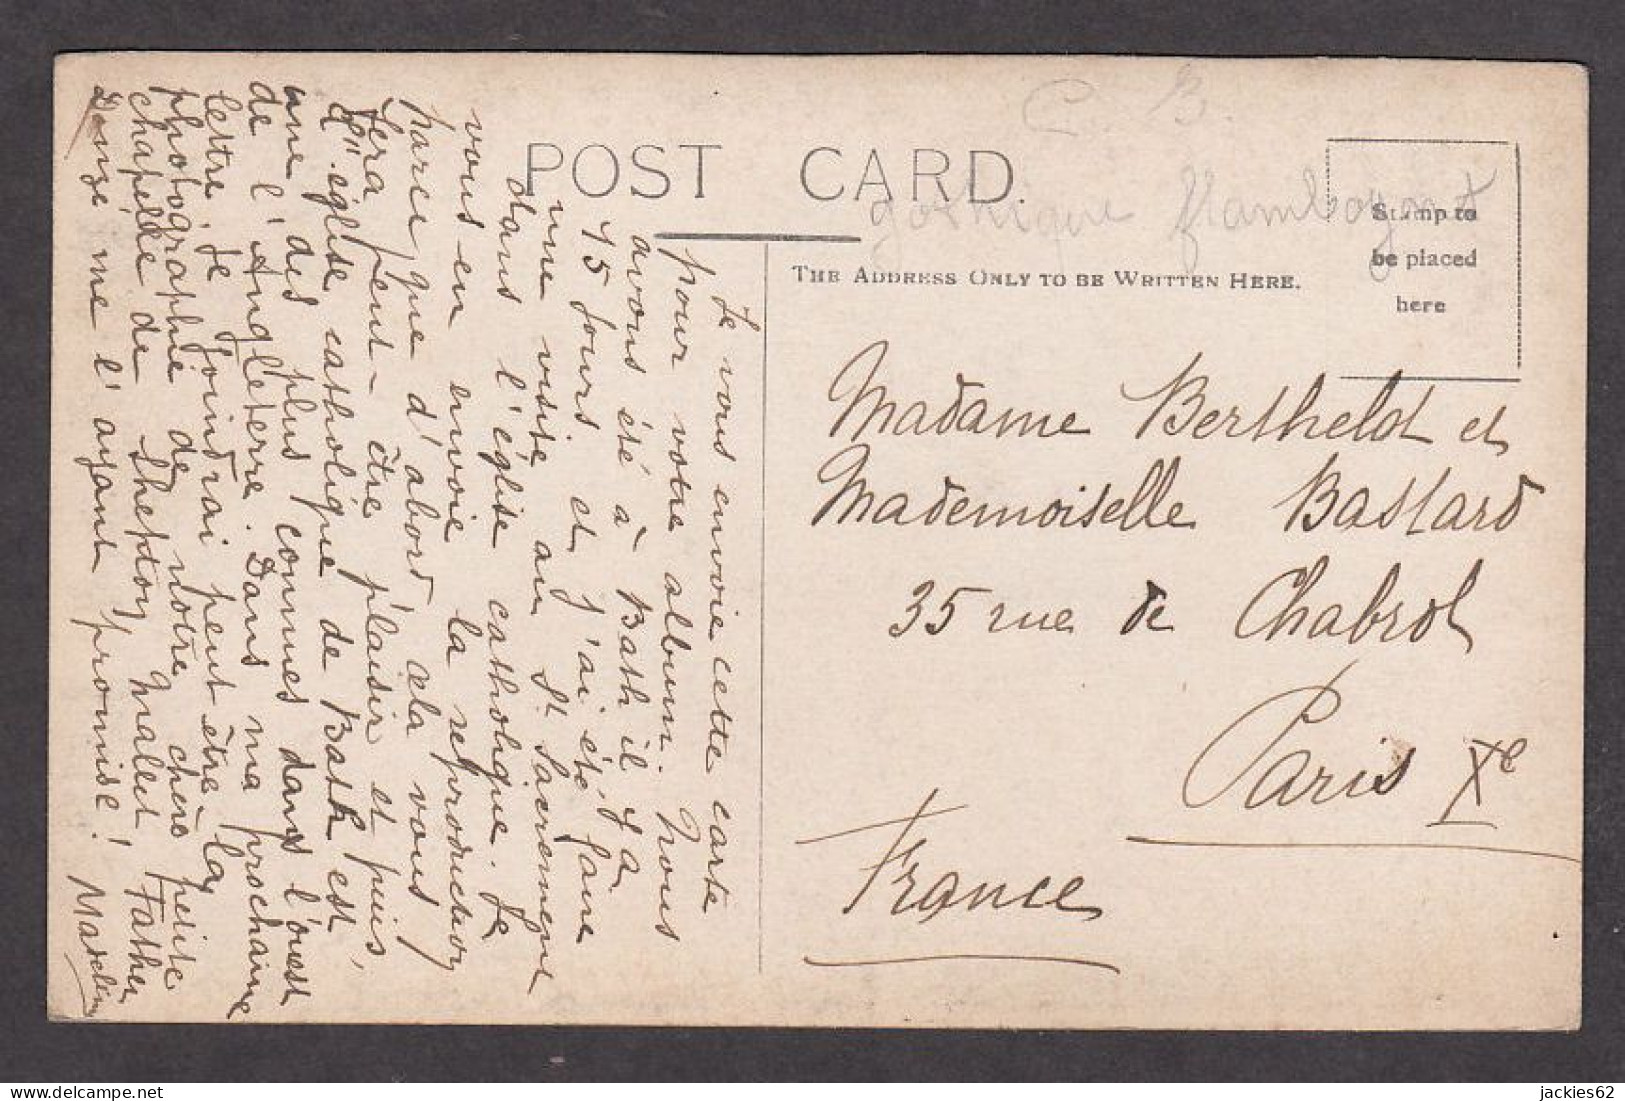 C. B.
gothique flamboyant
POST CARD.
Stamp to
be placed
here
THE ADDRESS ONLY TO BE WRITTEN HERE.
Madame Berthelot et
Mademoiselle Bastard
35 rue de Chabrol
Paris Xe
France
Je vous envoie cette carte
pour votre album. Nous
avons été à Bath il y a
15 jours et j'ai été faire
une visite au St Sacrement
dans l'église catholique. Je
vous en envoie la reproduction
parce que d'abord cela vous
fera peut-être plaisir et puis,
l'église catholique de Bath est
une des plus connues dans l'ouest
de l'Angleterre. Dans ma prochaine
lettre je joindrai peut être la
photographie de notre chère petite
chapelle de Shepton Mallet Father
Donzé me l'ayant promise! Madelin
jackies62